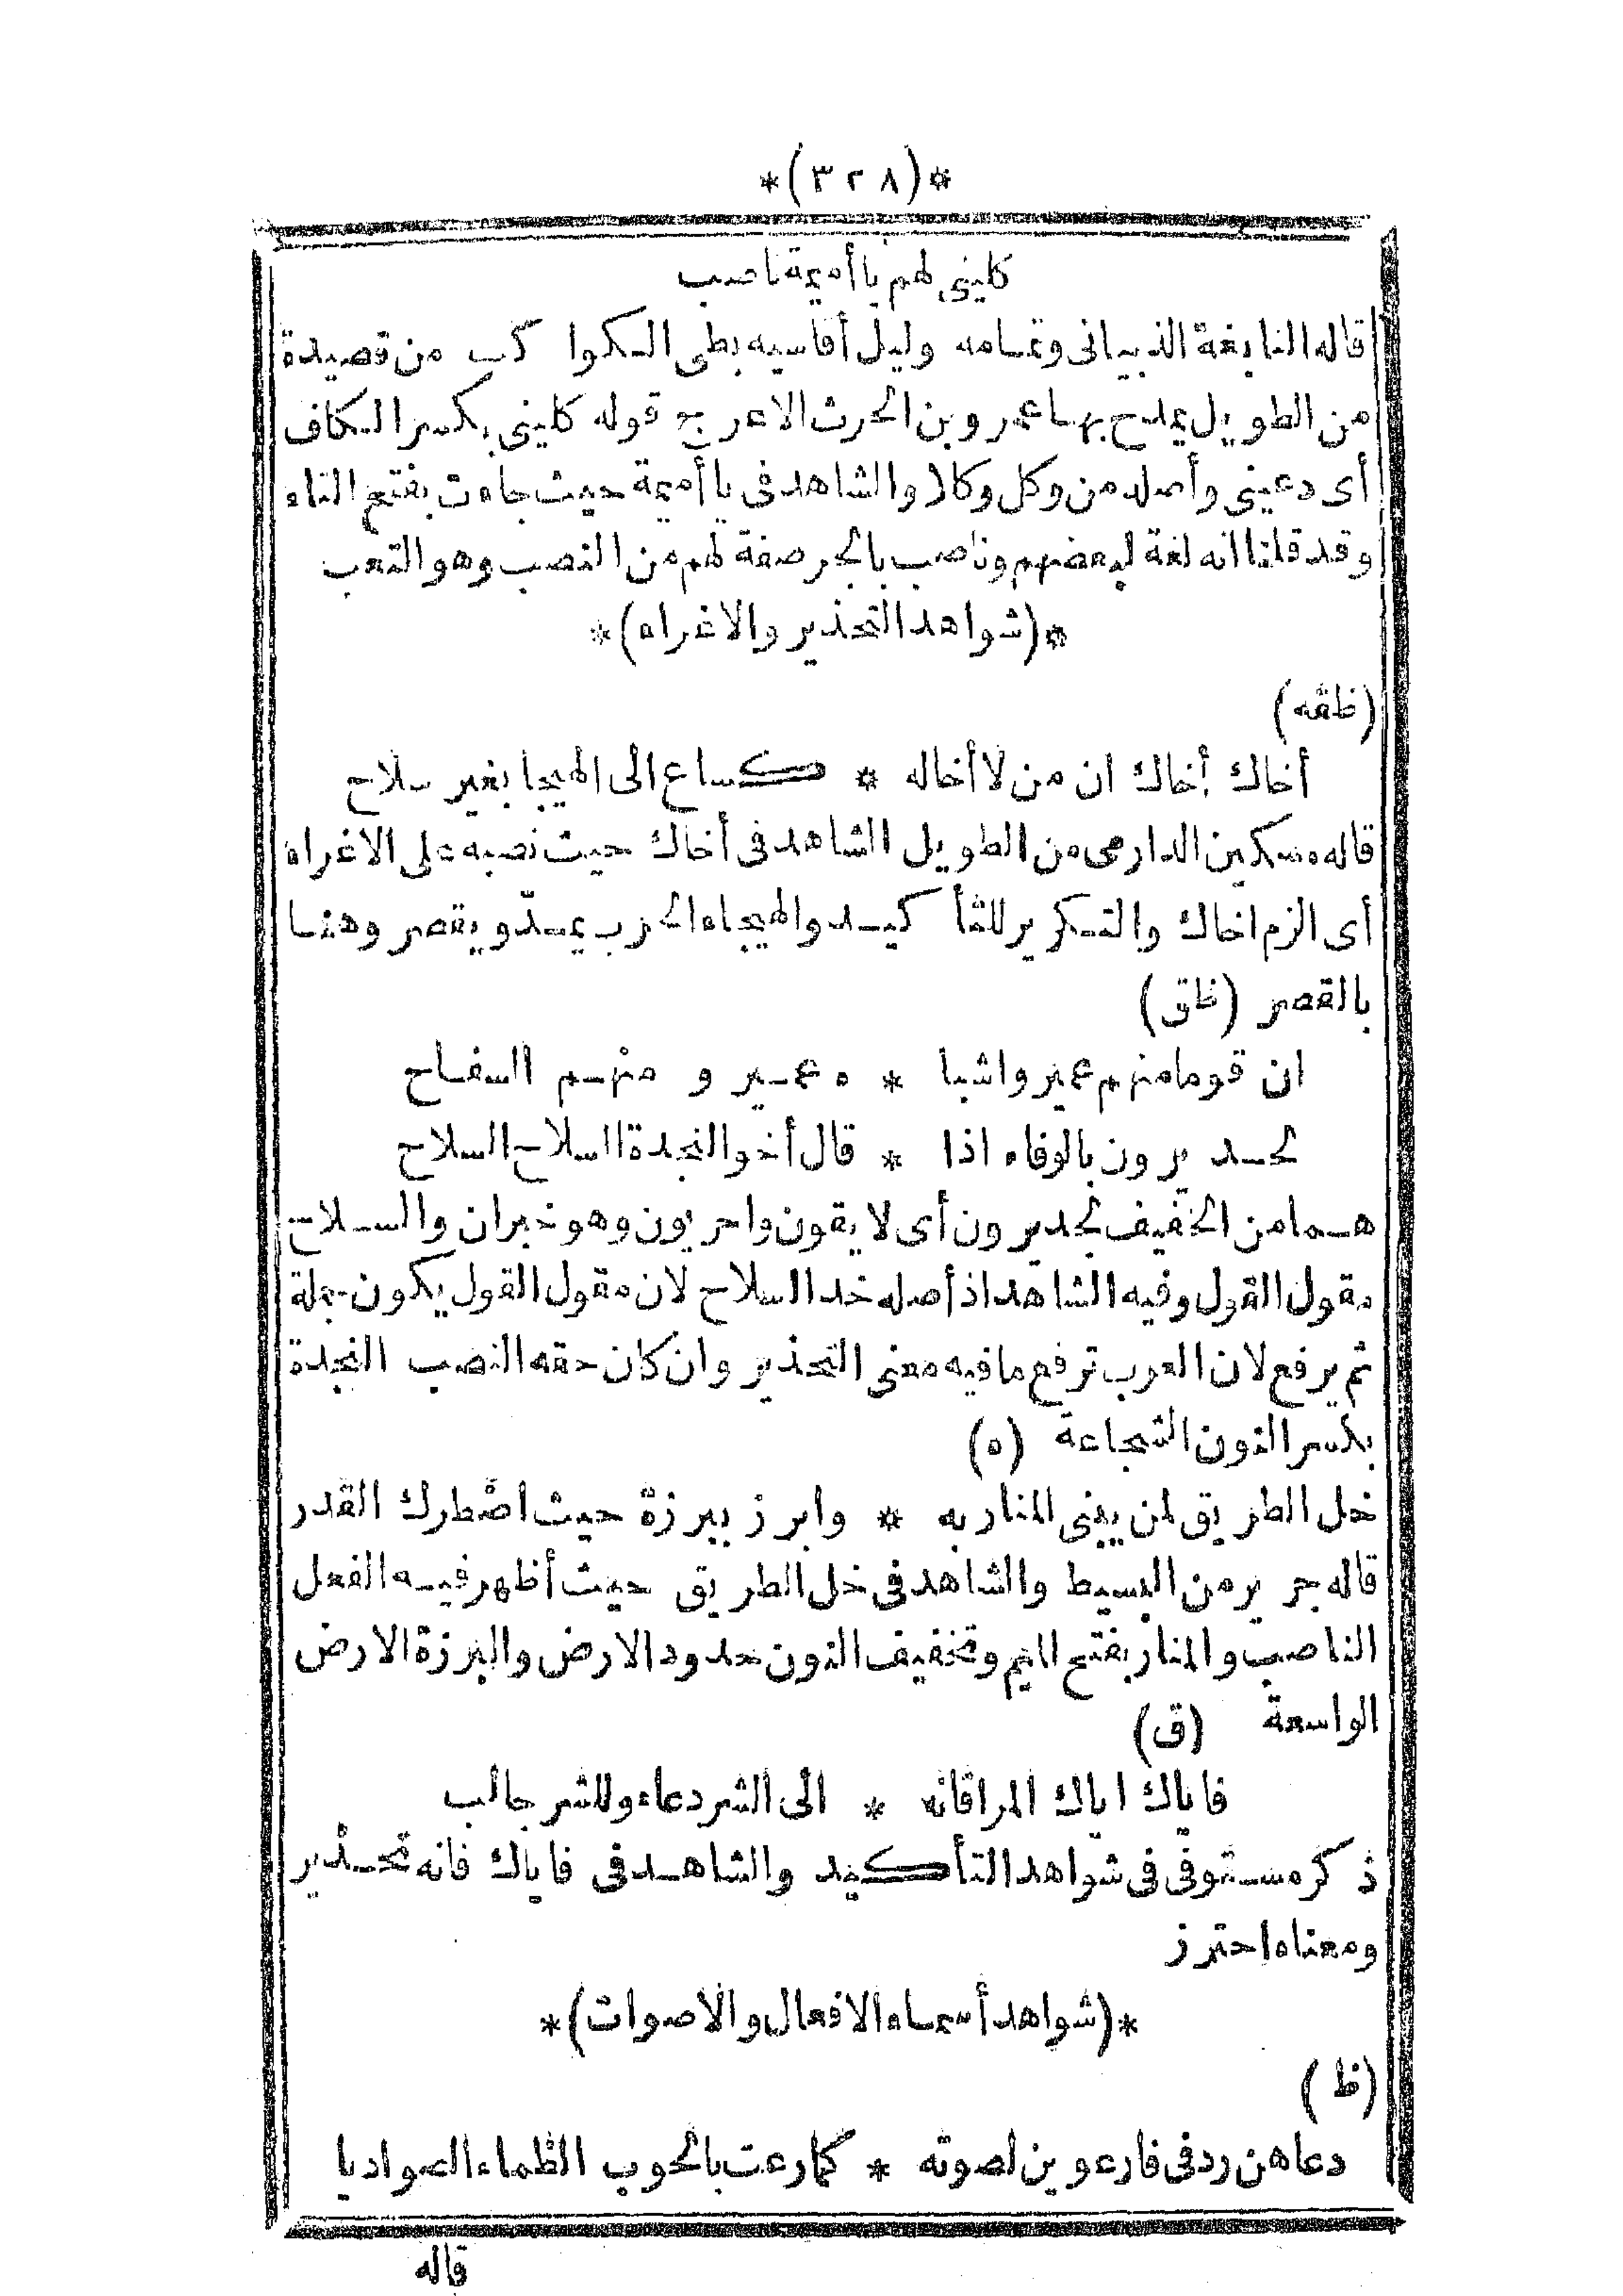 *(٣٢٨)*
كلينى لهم يا أميمة ناصب
قاله النابغة الذبيانى وتمامه وليل أقاسيه بطى الكواكب من قصيدة
من الطويل يمدح بها عمرو بن الحرث الاعرج قوله كلينى بكسر الكاف
أى دعينى وأصله من وكل وكلا والشاهد فى يا أميمة حيث جاءت بفتح التاء
وقد قلنا انه لغة لبعضهم وناصب بالجر صفة لهم من النصب وهو التعب
*(شواهد التحذير والاغراء)*
(ظقه)
أخاك أخاك ان من لا أخاله * كساع الى الهيجا بغير سلاح
قاله مسكين الدارمى من الطويل الشاهد فى أخاك حيث نصبه على الاغراء
أى الزم اخاك والتكرير للتأكيد والهيجاء الحرب يمدّ ويقصر وهنا
بالقصر (ظق)
ان قوما منهم عمير واشبا * ه عمير و منهم السفاح
لجديرون بالوفاء اذا * قال أخو النجدة السلاح السلاح
هما من الخفيف لجديرون أى لايقون واحريون وهو خبران والسلاح
مقول القول وفيه الشاهد اذ أصله خذ السلاح لان مقول القول يكون جملة
ثم يرفع لان العرب ترفع ما فيه معنى التحذير وان كان حقه النصب النجدة
بكسر النون الشجاعة (ه)
خل الطريق لمن يبنى المنار به * وابرز ببرزة حيث اضطرك القدر
قاله جرير من البسيط والشاهد فى خل الطريق حيث أظهر فيه الفعل
الناصب والمنار بفتح الميم وتخفيف النون حدود الارض والبرزة الارض
الواسعة (ق)
فاياك اياك المرا فانه * الى الشر دعاء وللشر جالب
ذكر مستوفى فى شواهد التأكيد والشاهد فى فاياك فانه تحذير
ومعناه احترز
*(شواهد أسماء الافعال والاصوات)*
(ظ)
دعاهن ردفى فارعوين لصوته * كما رعت بالحوب الظماء الصواديا
قاله